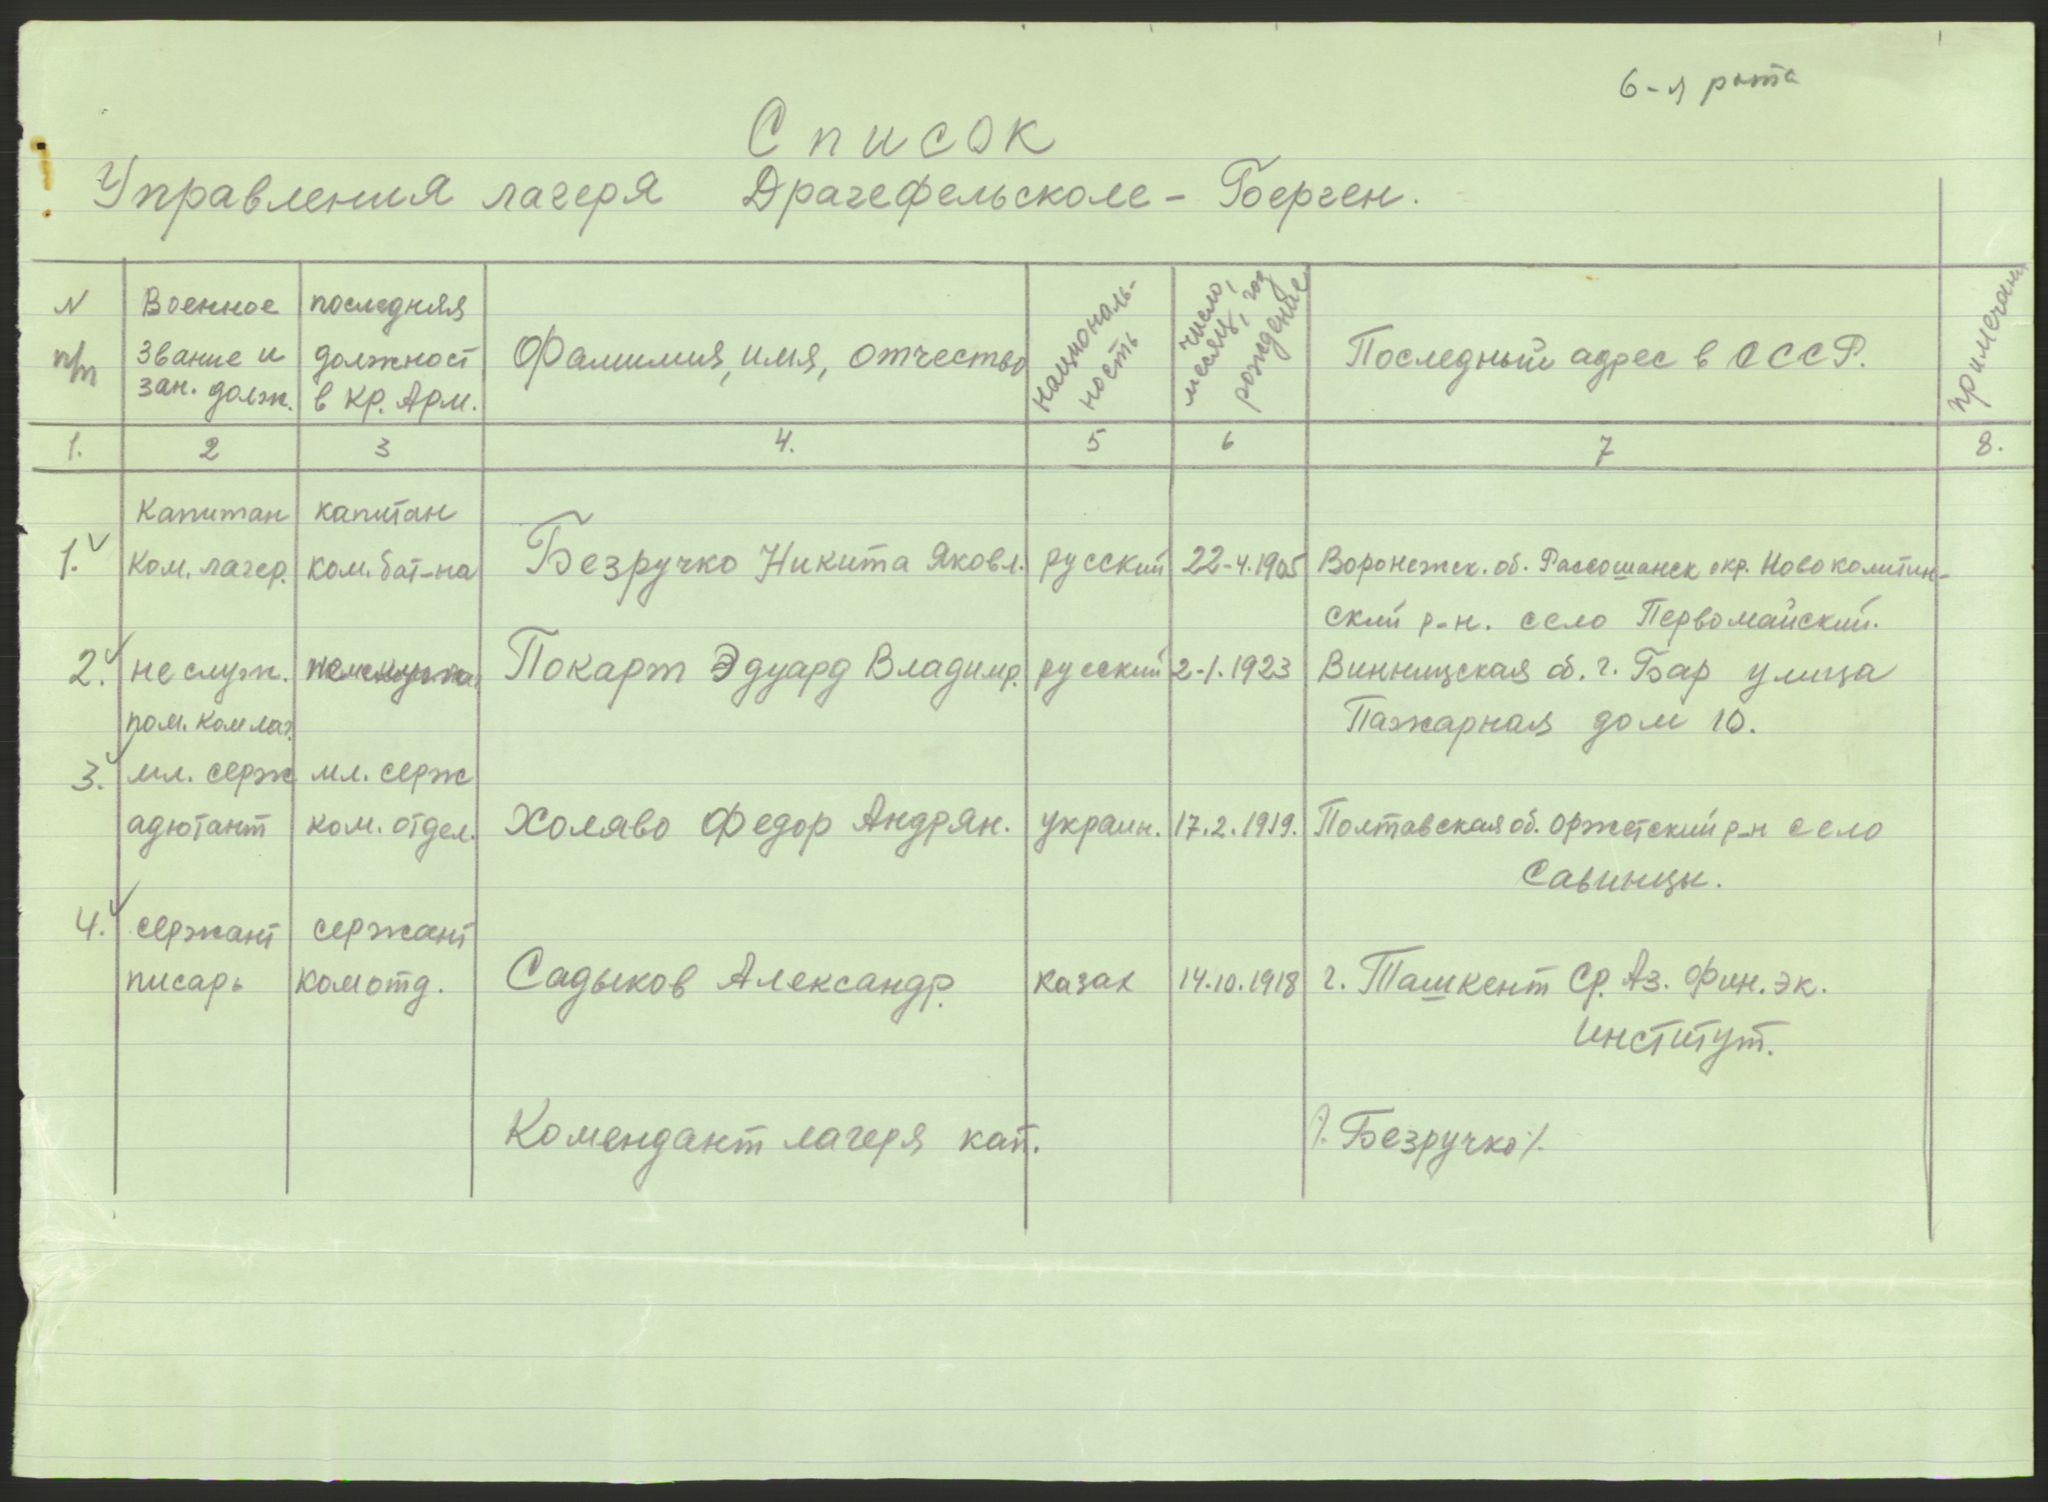 6-я рота
Список
Управления лагеря Драгефельсколе - Берген.
N п/п
Военное звание и зан. долж.
последняя должност в Кр. Арм.
Фамилия, имя, отчество
Националь-
ность
число, месяц, год рождение
Последный адрес в СССР.
примечани
1. 2 3 4. 5 6 7 8.
Капитан капитан
1. Ком. лагер. ком. бат-на Безручко Никита Яковл. русский 22-4.1905 Воронежск. об. Рассошанск окр. Новокалитин-
ский р-н. село Первомайский.
2. не служ. Покарж Эдуард Владимр. русский 2-1.1923 Винницская об. г. Бар улица
пом. ком лаг. Пажарная дом 10.
3. мл. серж мл. серж
адютант ком. отдел. Холяво Федор Андрян. украин. 17.2.1919. Полтавская об. Оржетский р-н село
Савинцы.
4. сержант сержант
писарь комотд. Садыков Александр. казах 14.10.1918 г. Ташкент Ср. Аз. Фин. эк.
Институт.
Комендант лагеря кап. /. Безручко /.